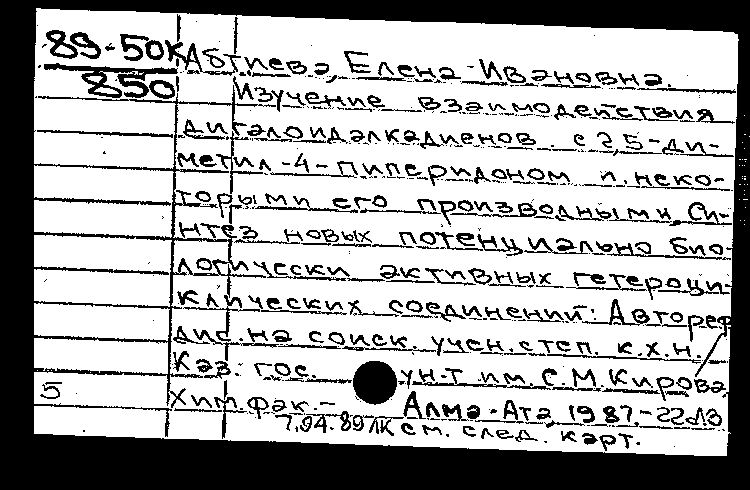 89-50К
850
Абтиева, Елена Ивановна.
Изучение взаимодействия
дигалоидалкадиенов с 2,5-ди-
метил-4-пиперидоном и неко-
торыми его производными. Си-
нтез новых потенциально био-
логически активных гетероци-
клических соединений: Автореф
дис. на соиск. учен. степ. к.х.н. /
Каз. гос. ун-т им. С.М. Кирова,
5
Хим. фак. - Алма-Ата, 1987. - 22 л3
7.04.89 ЛК см. след. карт.